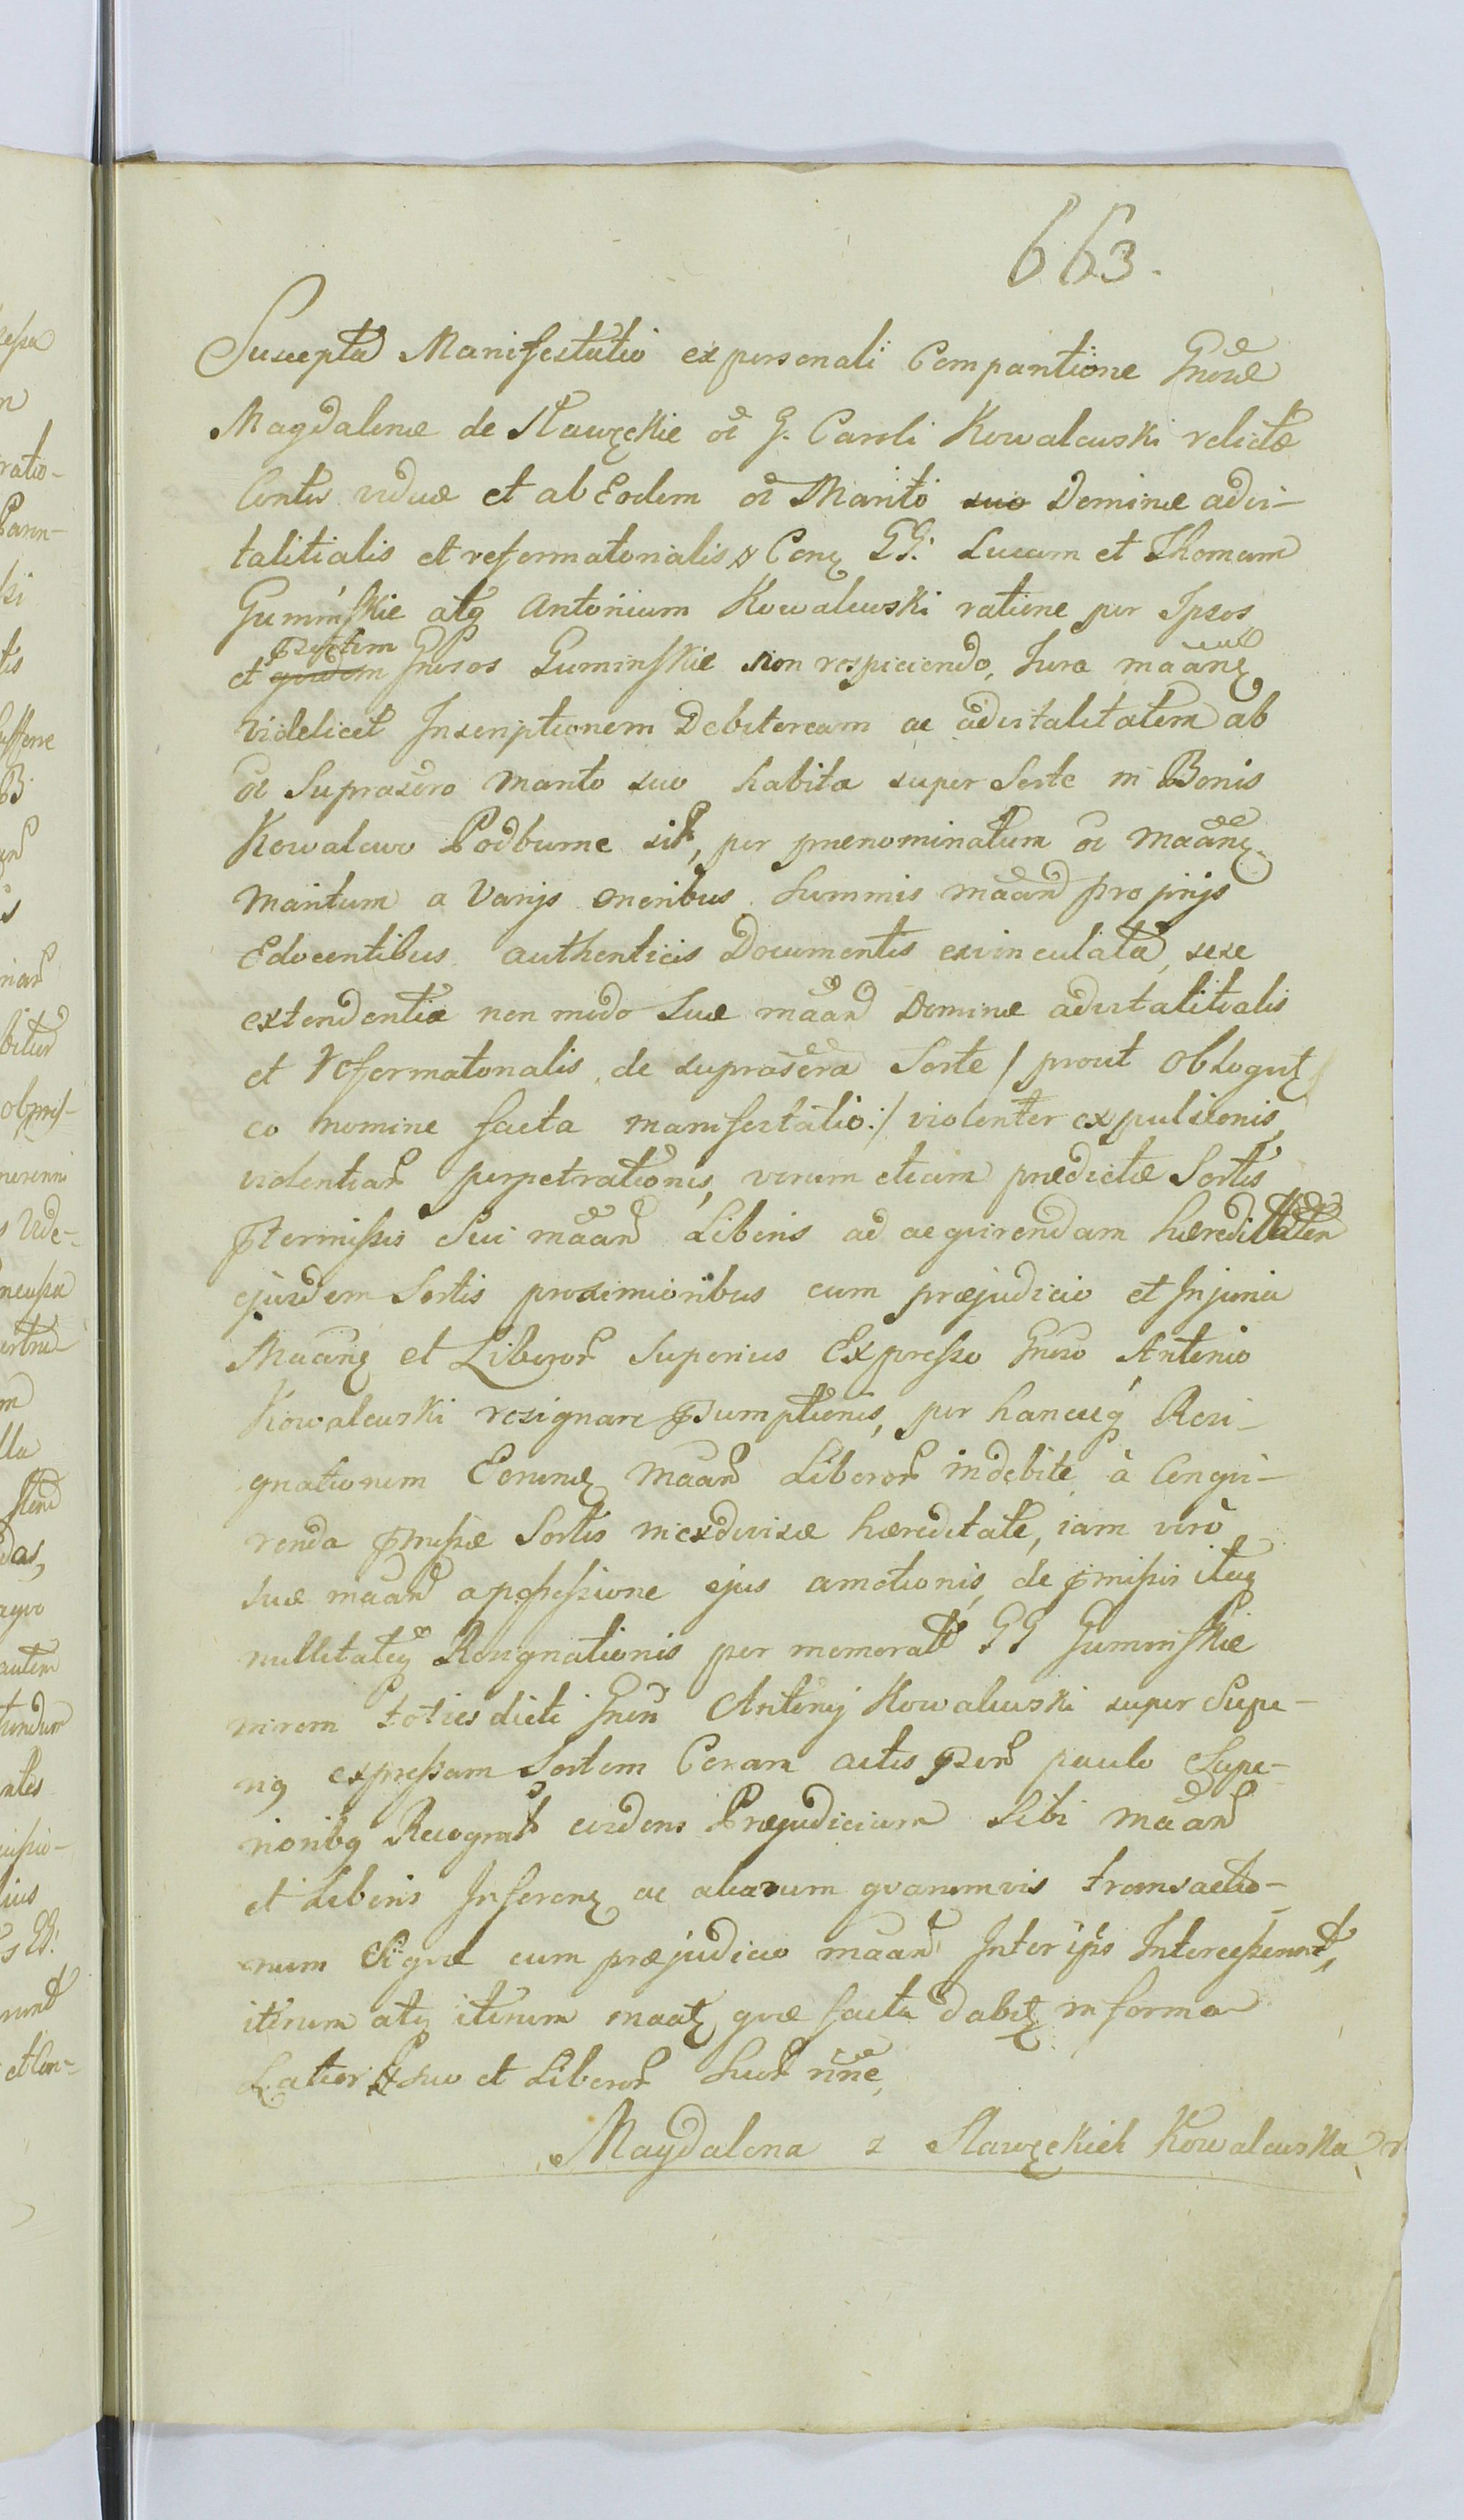 663.
Suscepta Manifestatio ex personali Comparitione Gnosæ
Magdalenæ de Sławęckie ol G. Caroli Kowalewski relictæ
Contis viduæ et ab Eodem ol Marito suo Dominæ advi-
talitialis et reformatorialis Conq GG. Lucam et Thomam
Gumińskie atq Antonium Kowalewski ratione per Ipsos
et quidem præsertim Gnosos Guminskie non respiciendo, Jura maanq
videlicet Inscriptionem Debitoream ac advitalitatem ab
ol Suprascro Marito suo habita super Sorte in Bonis
Kowalewo Podburne sit, per prænominatum ol Maanq
Maritum a Varijs oneribus Summis maan proprijs
Edocentibus authenticis Documentis exvinculata, sese
extendentia non modo Suæ maan Dominæ advitalitialis
et Reformatorialis de suprascra Sorte / prout obloqut
eo nomine facta manifestatio:/ violenter expulsionis
violentiar perpetrationis, verum etiam prædictæ Sortis
ptermissis Sui maan Liberis ad acquirendam hæreditatem
ejusdem Sortis proximioribus cum præjudicio et Injuria
Maanq et Liberor Superius Expresso Gnoso Antonio
Kowalewski resignare psumptionis, per hancq Resi-
gnationem Eorunq maan Liberor indebite à Conqui-
renda pmissæ Sortis inexdivisæ hæreditate, iam verò
suæ maan a possessione ejus amotionis, de pmissis itaq
nullitateq Resignationis per memorat GG Guminskie
in rem toties dicti Gnosi Antonij Kowalewski super Supe-
riq expressam Sortem Coram actis psen paulo Supe-
rioribq Recognit evidens Præjudicium Sibi maan
et Liberis Inferenq ac aliarum quarumvis transactio-
num Siquæ cum præjudicio maan Inter ipsos Intercesserunt,
iterum atq iterum maatq quæ facta dabitq in forma
Latiori suo et Liberor Suor nne,
Magdalena z Sławęckich Kowalewska